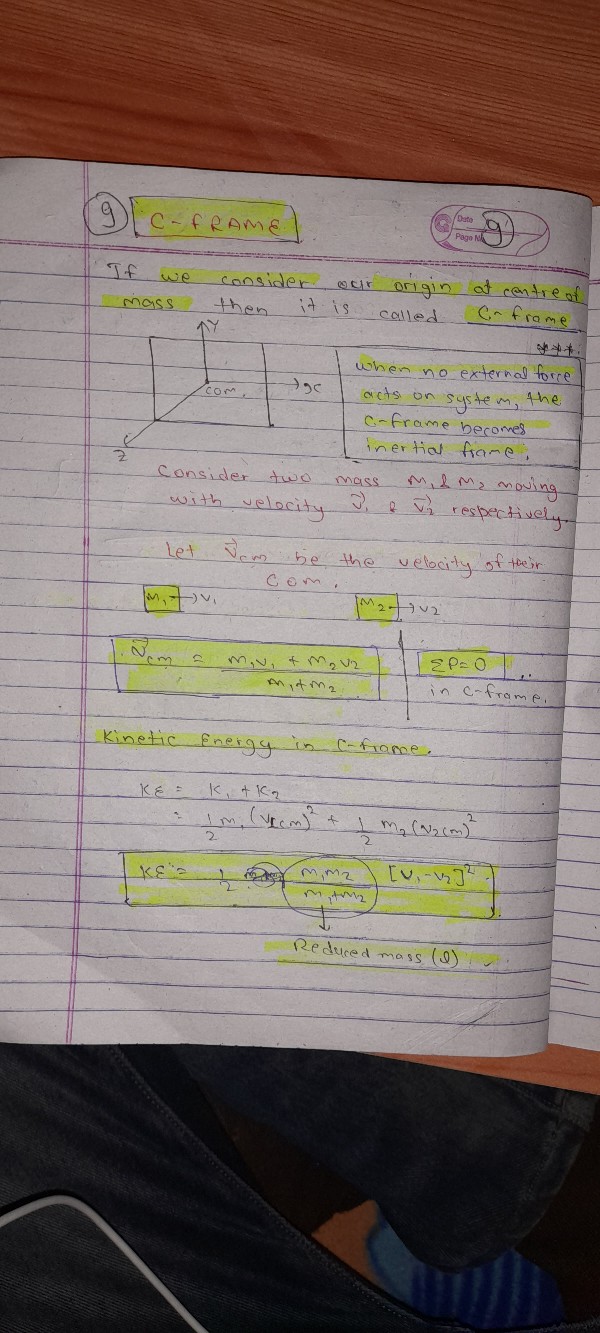 9 C-FRAME
Date 9
Page No
If we consider our origin at centre of
mass then it is called C-frame
***
Y
com.
x
Z
when no external force
acts on system, the
C-frame becomes
inertial frame.
Consider two mass m₁ & m₂ moving
with velocity V⃗₁ & V⃗₂ respectively.
Let V⃗cm be the velocity of their
com.
m₁ → V₁ m₂ → V2
V⃗cm = m₁v₁ + m₂v2 / m₁+m₂
ΣP=0
in C-frame.
Kinetic Energy in C-frame.
KE = K₁ + K₂
= 1/2 m₁ (v₁cm)² + 1/2 m₂ (v₂cm)²
KE = 1/2 m₁m₂ / m₁+m₂ [V₁-V₂]²
Reduced mass